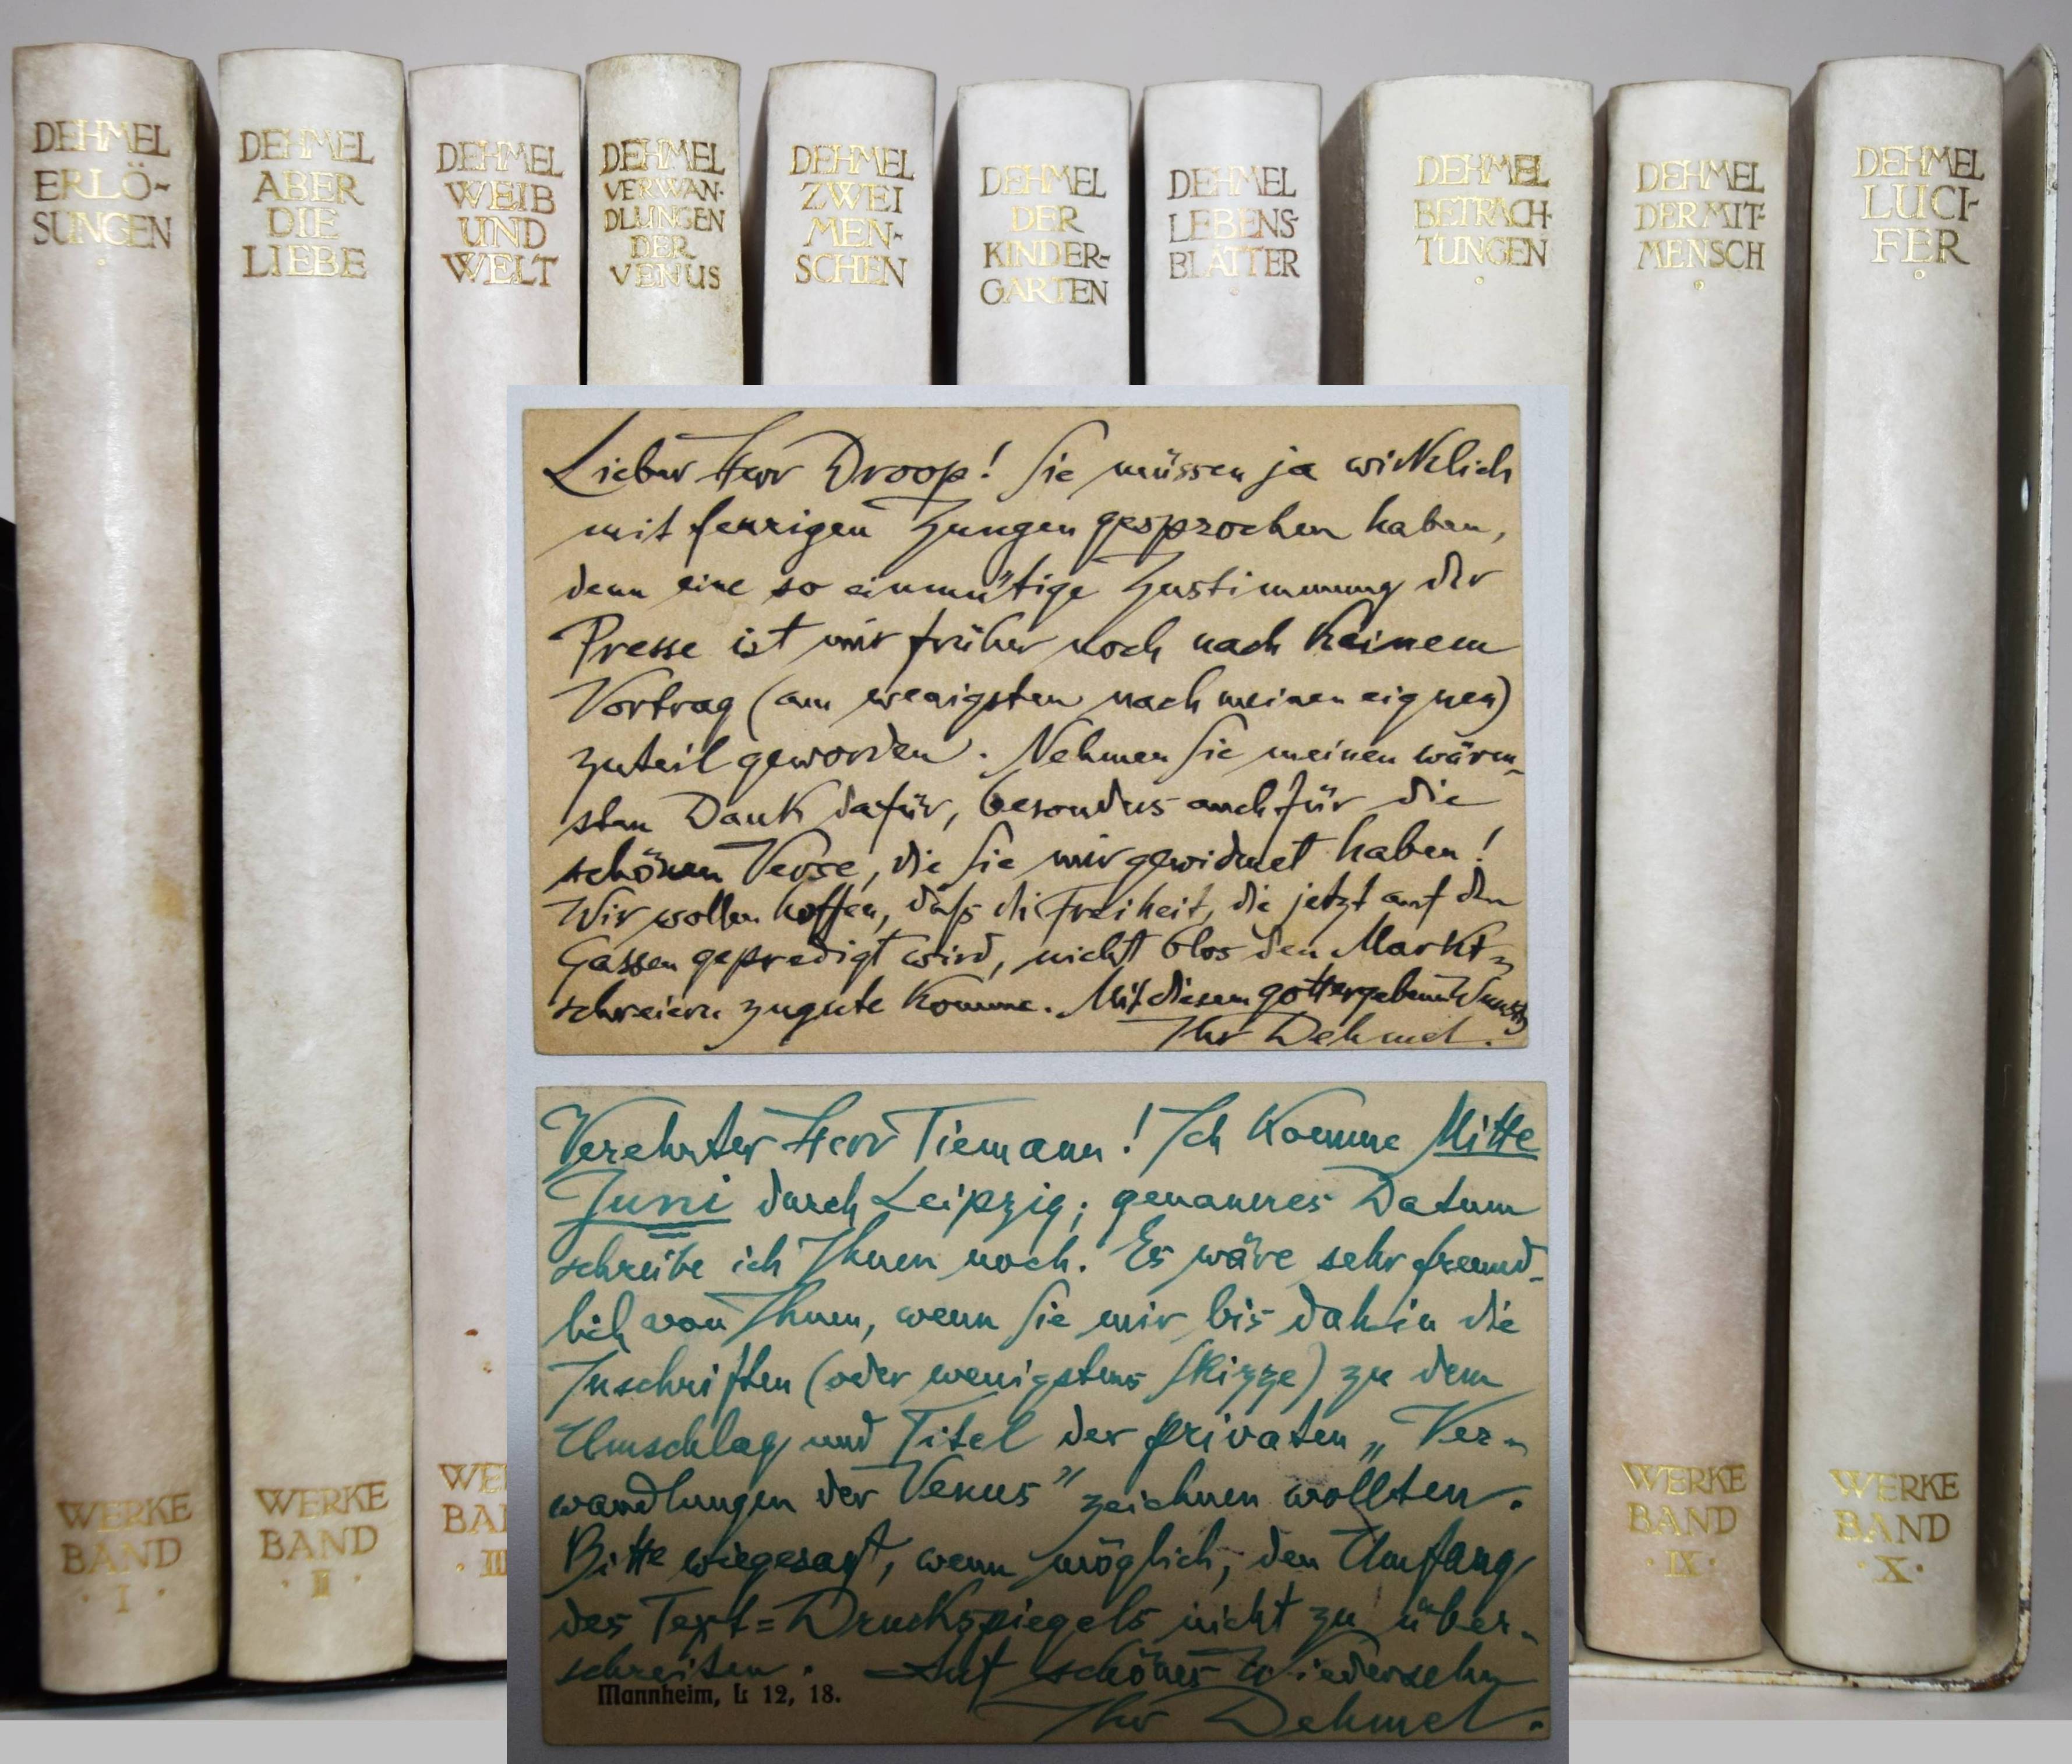 DEHMEL
ERLÖ-
SUNGEN
DEHMEL
ABER
DIE
LIEBE
DEHMEL
WEIB
UND
WELT
DEHMEL
VERWAN-
DLUNGEN
DER
VENUS
DEHMEL
ZWEI
MEN-
SCHEN
DEHMEL
DER
KINDER-
GARTEN
DEHMEL
LEBENS-
BLÄTTER
DEHMEL
BETRACH-
TUNGEN
DEHMEL
DER MIT-
MENSCH
DEHMEL
LUCI-
FER
WERKE
BAND
· I ·
WERKE
BAND
· II ·
WE
BA
· III
WERKE
BAND
· IX ·
WERKE
BAND
· X ·
Lieber Herr Droop! Sie müssen ja wirklich
mit feurigen Zungen gesprochen haben,
denn eine so einmütige Zustimmung der
Presse ist mir früher noch nach keinem
Vortrag (am wenigsten nach meinen eignen)
zuteil geworden. Nehmen Sie meinen wärm-
sten Dank dafür, besonders auch für die
schönen Verse, die Sie mir gewidmet haben!
Wir wollen hoffen, daß die Freiheit, die jetzt auf den
Gassen gepredigt wird, nicht blos den Markt=
schreiern zugute komme. Mit diesem gottergebenen Wunsch
Ihr Dehmel.
Verehrter Herr Tiemann! Ich komme Mitte
Juni durch Leipzig; genaueres Datum
schreibe ich Ihnen noch. Es wäre sehr freund-
lich von Ihnen, wenn Sie mir bis dahin die
Inschriften (oder wenigstens Skizze) zu dem
Umschlag und Titel der privaten „Ver-
wandlungen der Venus" zeichnen wollten.
Bitte wiegesagt, wenn möglich, den Umfang
des Text=Druckspiegels nicht zu über-
schreiten. Auf schönes Wiedersehn
Mannheim, L 12, 18.
Ihr Dehmel.